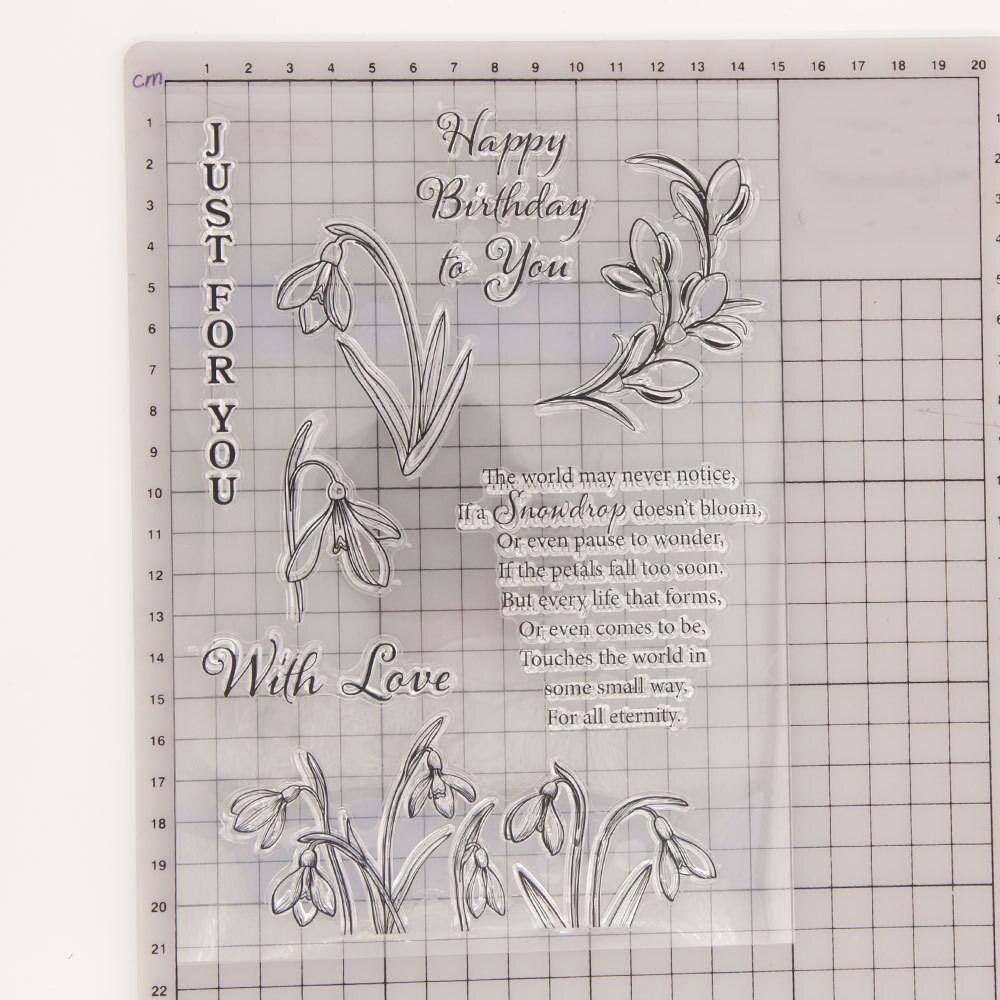 1 2 3 4 5 6 7 8 9 10 11 12 13 14 15 16 17 18 19 20
cm
1
2
3
4
5
6
7
8
9
10
11
12
13
14
15
16
17
18
19
20
21
22
JUST FOR YOU
Happy
Birthday
to You
The world may never notice,
If a Snowdrop doesn't bloom,
Or even pause to wonder,
If the petals fall too soon.
But every life that forms,
Or even comes to be,
Touches the world in
some small way,
For all eternity.
With Love